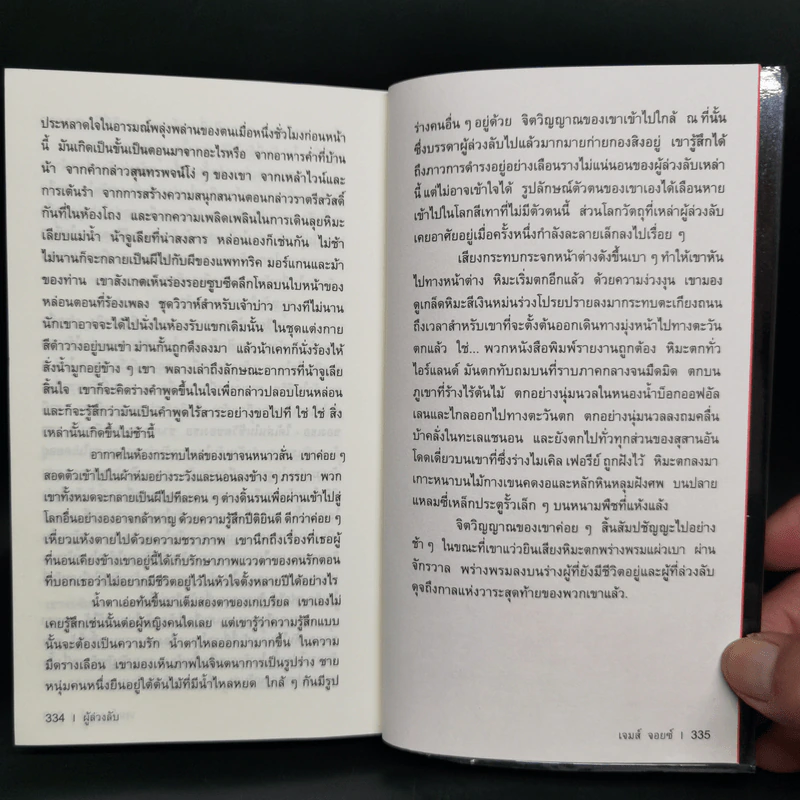 ประหลาดใจในอารมณ์พลุ่งพล่านของตนเมื่อหนึ่งชั่วโมงก่อนหน้า
นี้ มันเกิดขึ้นเป็นขั้นเป็นตอนมาจากอะไรหรือ จากอาหารค่ำที่บ้าน
น้า จากคำกล่าวสุนทรพจน์โง่ ๆ ของเขา จากเหล้าไวน์และ
การเต้นรำ จากการสร้างความสนุกสนานตอนกล่าวราตรีสวัสดิ์
กันที่ในห้องโถง และจากความเพลิดเพลินในการเดินลุยหิมะ
เลียบแม่น้ำ น้าจูเลียที่น่าสงสาร หล่อนเองก็เช่นกัน ไม่ช้า
ไม่นานก็จะกลายเป็นผีไปกับผีของแพททริค มอร์แกนและม้า
ของท่าน เขาสังเกตเห็นร่องรอยซูบซีดลึกโหลบนใบหน้าของ
หล่อนตอนที่ร้องเพลง ชุดวิวาห์สำหรับเจ้าบ่าว บางทีไม่นาน
นักเขาอาจจะได้ไปนั่งในห้องรับแขกเดิมนั้น ในชุดแต่งกาย
สีดำวางอยู่บนเข่า ม่านกั้นถูกดึงลงมา แล้วน้าเคทก็นั่งร้องไห้
สั่งน้ำมูกอยู่ข้าง ๆ เขา พลางเล่าถึงลักษณะอาการที่น้าจูเลีย
สิ้นใจ เขาก็จะคิดร่างคำพูดขึ้นในใจเพื่อกล่าวปลอบโยนหล่อน
และก็จะรู้สึกว่ามันเป็นคำพูดไร้สาระอย่างขอไปที ใช่ ใช่ สิ่ง
เหล่านั้นเกิดขึ้นไม่ช้านี้
อากาศในห้องกระทบไหล่ของเขาจนหนาวสั่น เขาค่อย ๆ
สอดตัวเข้าไปในผ้าห่มอย่างระวังและนอนลงข้าง ๆ ภรรยา พวก
เขาทั้งหมดจะกลายเป็นผีไปทีละคน ๆ ต่างดิ้นรนเพื่อผ่านเข้าไปสู่
โลกอื่นอย่างองอาจกล้าหาญ ด้วยความรู้สึกปีติยินดี ดีกว่าค่อย ๆ
เหี่ยวแห้งตายไปด้วยความชราภาพ เขานึกถึงเรื่องที่เธอผู้
ที่นอนเคียงข้างเขาอยู่นี้ได้เก็บรักษาภาพแววตาของคนรักตอน
ที่บอกเธอว่าไม่อยากมีชีวิตอยู่ไว้ในหัวใจตั้งหลายปีได้อย่างไร
น้ำตาเอ่อท้นขึ้นมาเต็มสองตาของเกเบรียล เขาเองไม่
เคยรู้สึกเช่นนั้นต่อผู้หญิงคนใดเลย แต่เขารู้ว่าความรู้สึกแบบ
นั้นจะต้องเป็นความรัก น้ำตาไหลออกมามากขึ้น ในความ
มืดรางเลือน เขามองเห็นภาพในจินตนาการเป็นรูปร่าง ชาย
หนุ่มคนหนึ่งยืนอยู่ใต้ต้นไม้ที่มีน้ำไหลหยด ใกล้ ๆ กันมีรูป
334 | ผู้ล่วงลับ
ร่างคนอื่น ๆ อยู่ด้วย จิตวิญญาณของเขาเข้าไปใกล้ ณ ที่นั้น
ซึ่งบรรดาผู้ล่วงลับไปแล้วมากมายก่ายกองสิงอยู่ เขารู้สึกได้
ถึงภาวการดำรงอยู่อย่างเลือนรางไม่แน่นอนของผู้ล่วงลับเหล่า
นี้ แต่ไม่อาจเข้าใจได้ รูปลักษณ์ตัวตนของเขาเองได้เลือนหาย
เข้าไปในโลกสีเทาที่ไม่มีตัวตนนี้ ส่วนโลกวัตถุที่เหล่าผู้ล่วงลับ
เคยอาศัยอยู่เมื่อครั้งหนึ่งกำลังละลายเล็กลงไปเรื่อย ๆ
เสียงกระทบกระจกหน้าต่างดังขึ้นเบา ๆ ทำให้เขาหัน
ไปทางหน้าต่าง หิมะเริ่มตกอีกแล้ว ด้วยความง่วงงุน เขามอง
ดูเกล็ดหิมะสีเงินหม่นร่วงโปรยปรายลงมากระทบตะเกียงถนน
ถึงเวลาสำหรับเขาที่จะตั้งต้นออกเดินทางมุ่งหน้าไปทางตะวัน
ตกแล้ว ใช่... พวกหนังสือพิมพ์รายงานถูกต้อง หิมะตกทั่ว
ไอร์แลนด์ มันตกทับถมบนที่ราบภาคกลางจนมืดมิด ตกบน
ภูเขาที่ร้างไร้ต้นไม้ ตกอย่างนุ่มนวลในหนองน้ำบ็อกออฟอัล
เลนและไกลออกไปทางตะวันตก ตกอย่างนุ่มนวลลงถมคลื่น
บ้าคลั่งในทะเลแชนอน และยังตกไปทั่วทุกส่วนของสุสานอัน
โดดเดี่ยวบนเขาที่ซึ่งร่างไมเคิล เฟอรีย์ ถูกฝังไว้ หิมะตกลงมา
เกาะหนาบนไม้กางเขนคดงอและหลักหินหลุมฝังศพ บนปลาย
แหลมซี่เหล็กประตูรั้วเล็ก ๆ บนหนามพืชที่แห้งแล้ง
จิตวิญญาณของเขาค่อย ๆ สิ้นสัมปชัญญะไปอย่าง
ช้า ๆ ในขณะที่เขาแว่วยินเสียงหิมะตกพร่างพรมแผ่วเบา ผ่าน
จักรวาล พร่างพรมลงบนร่างผู้ที่ยังมีชีวิตอยู่และผู้ที่ล่วงลับ
ดุจถึงกาลแห่งวาระสุดท้ายของพวกเขาแล้ว.
เจมส์ จอยซ์ | 335